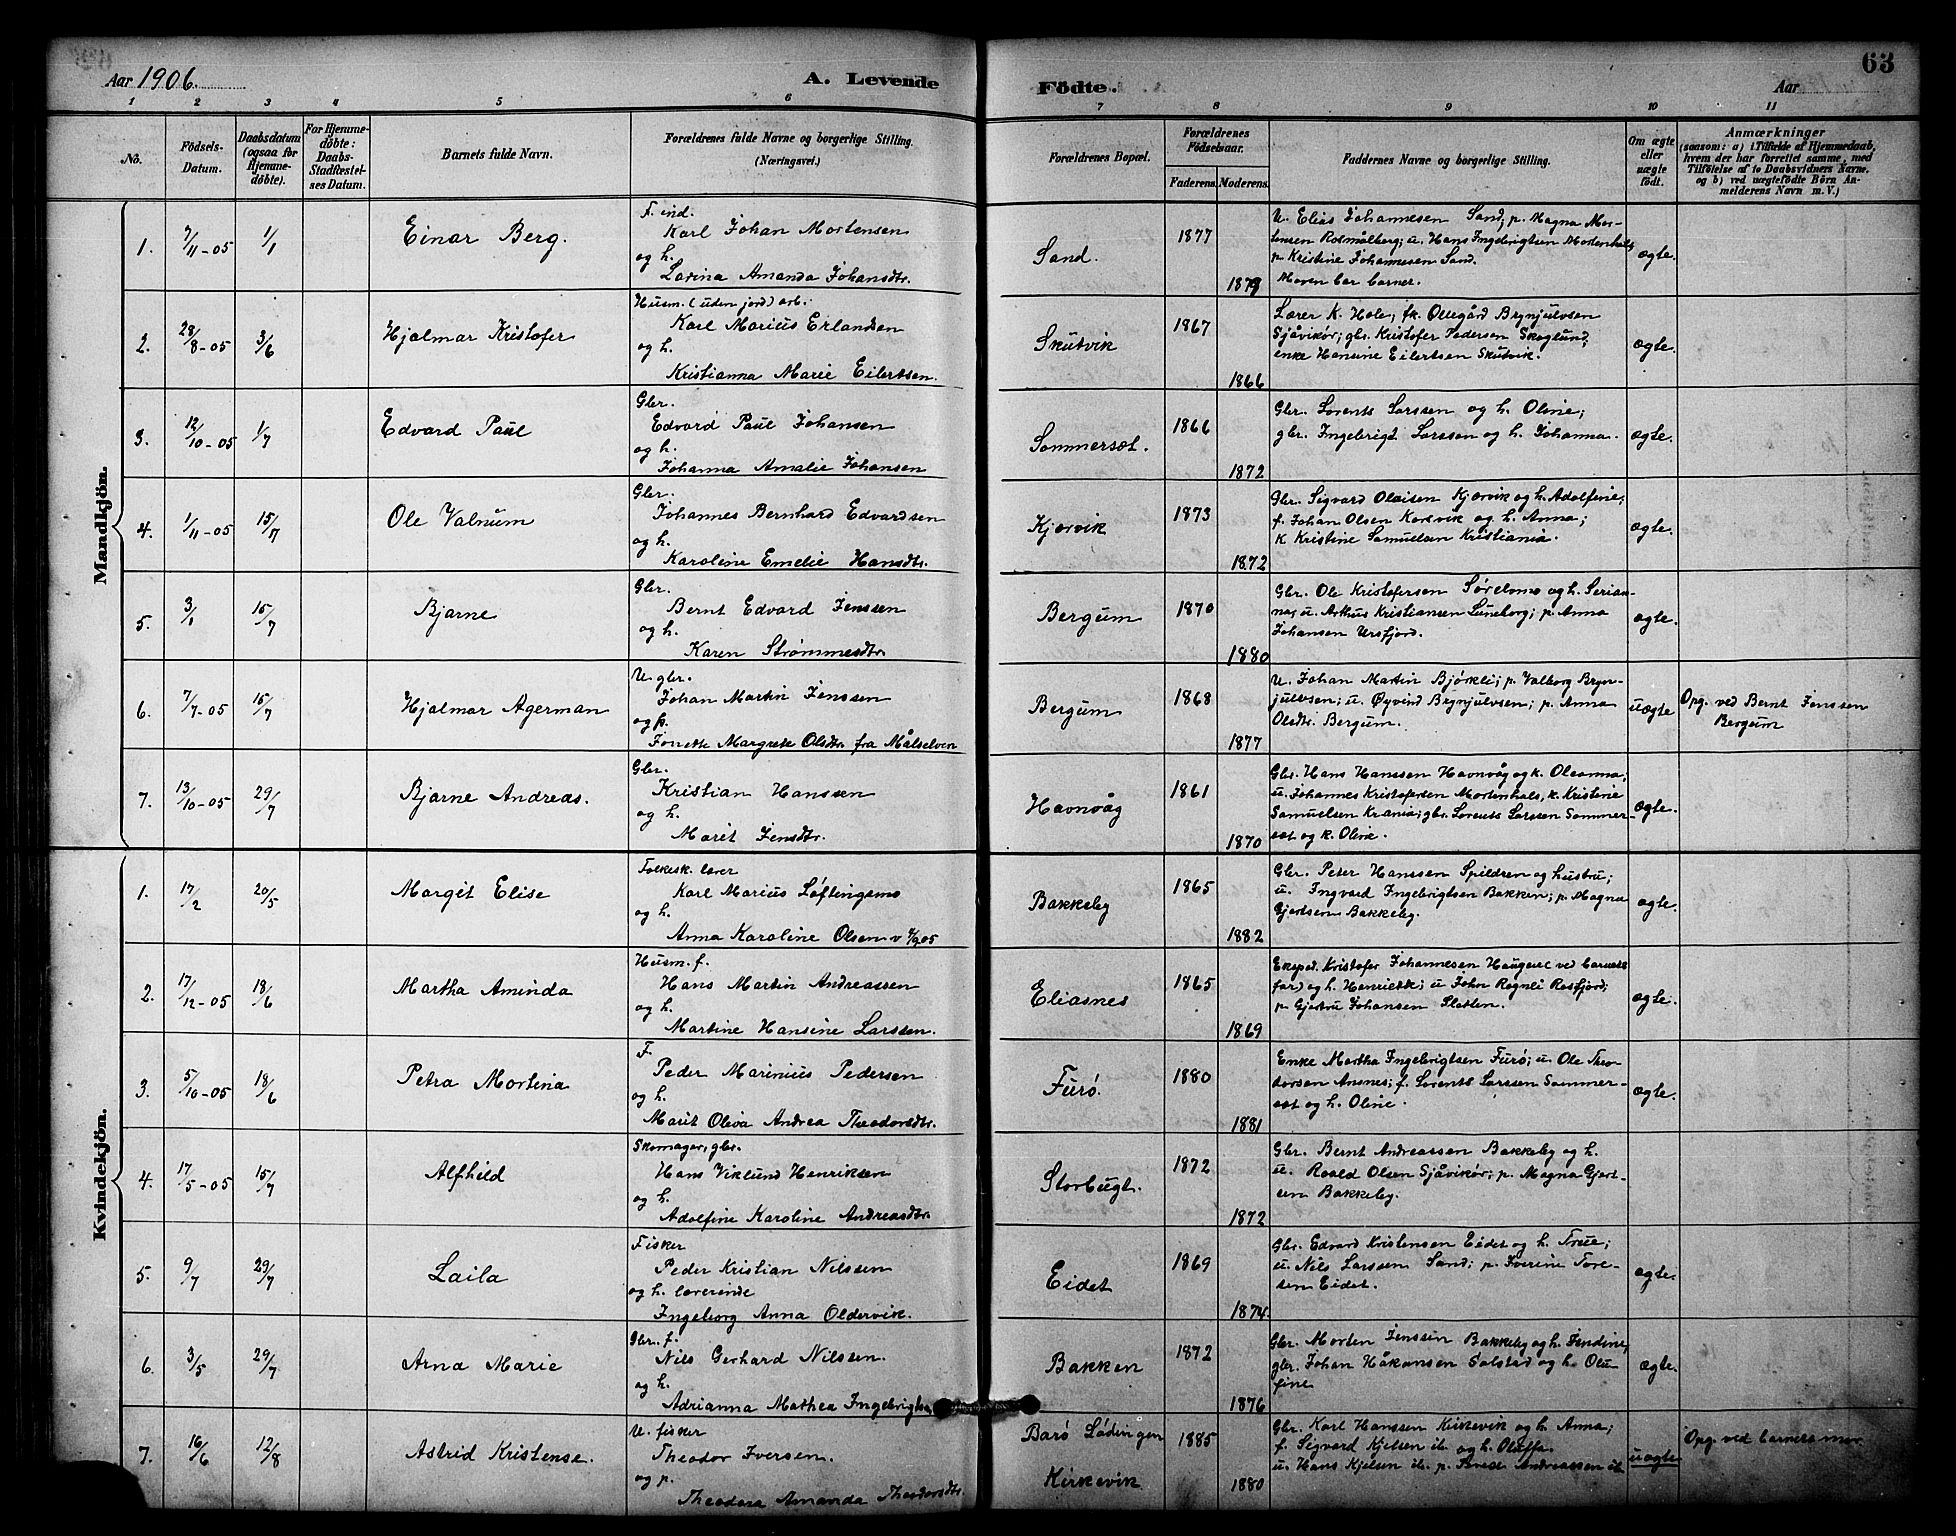 Aar 1906.
A. Levende Födte.
63
Aar
1 2 3 4 5 6 7 8 9 10 11
No.
Födsels-Datum.
Daabsdatum (ogsaa for Hjemme-döbte).
For Hjemme-döbte: Daabs-Stadfæstel-ses Datum.
Barnets fulde Navn.
Forældrenes fulde Navne og borgerlige Stilling.
(Næringsvei.)
Forældrenes Bopæl.
Forældrenes Födselsaar.
Faderens. Moderens.
Faddernes Navne og borgerlige Stilling.
Om ægte eller uægte födt.
Anmærkninger
(saasom: a) i Tilfælde af Hjemmedaab, hvem der har forrettet samme, med Tilföielse af to Daabsvidners Navne. og b) ved uægtefödte Börn Anmelderens Navn m. V.)
Mandkjön.
1. 7/11-05 1/1 Einar Berg.
F. ind.
Karl Johan Mortensen
og h.
Larina Amanda Johansdtr.
Sand. 1877 1879
U. Elias Johannesen Sand; p. Magna Mor-
tensen Rosmålberg; u. Hans Ingebrigtsen Mortenhals,
p. Kristine Johannesen Sand.
Moren bar barnet.
ægte.
2. 28/8-05 3/6 Hjalmar Kristofer
Husm. (uden jord) arb.
Karl Marius Erlandsen
og h.
Kristianna Marie Eilertsen.
Skutvik 1867 1866
Lærer K. Hole; fk. Ollegård Brynjulvsen
Sjåvikør; gbr. Kristofer Pedersen Skoglund,
enke Hansine Eilertsen Skutvik.
ægte.
3. 12/10-05 1/7 Edvard Paul
Gbr.
Edvard Paul Johansen
og h.
Johanna Amalie Johansen
Sommersæt. 1866 1872
Gbr. Lorents Larssen og h. Oline;
gbr. Ingebrigt Larssen og h. Johanna.
ægte.
4. 1/11-05 15/7 Ole Valnum
Gbr.
Johannes Bernhard Edvardsen
og h.
Karoline Emelie Hansdtr.
Kjorvik 1873 1872
Gbr. Sigvard Olaisen Kjorvik og h. Adolfine;
f. Johan Olsen Korsvik og h. Anna;
k. Kristine Samuelsen Kristiania.
ægte.
5. 3/1 15/7 Bjarne
Gbr.
Bernt Edvard Jenssen
og h.
Karen Strømmesdtr.
Bergum 1870 1880
Gbr. Ole Kristofersen Sørelvmo og h. Serian-
na; u. Arthur Kristiansen Luneborg; p. Anna
Johansen Ursfjord.
ægte.
6. 7/7-05 15/7 Hjalmar Agerman
U. gbr.
Johan Martin Jenssen
og p.
Jonette Margrete Olsdtr fra Målselven
Bergum 1868 1877
U. Johan Martin Bjørkli; p. Valborg Bryn-
julvsen; u. Øyvind Brynjulvsen; p. Anna
Olsdtr. Bergum.
uægte
Opg. ved Bernt Jenssen
Bergum
7. 13/10-05 29/7 Bjarne Andreas.
Gbr.
Kristian Hanssen
og h.
Marit Jensdtr.
Havnvåg 1861 1870
Gbr. Hans Hanssen Havnvåg og k. Oleanna,
u. Johannes Kristofersen Mortenhals, k. Kristine
Samuelsen Krania; gbr. Lorents Larssen Sommer-
sæt og k. Oline.
ægte.
Kvindekjön.
1. 17/2 20/5 Margit Elise
Folkesk. lærer
Karl Marius Løftingsmo
og h.
Anna Karoline Olsen
Bakkeby 1865 1882
Gbr. Peter Hanssen Spildren og hustru;
u. Ingvard Ingebrigtsen Bakken; p. Magna
Gjertsen Bakkeby.
ægte.
2. 17/12-05 18/6 Martha Aminda
Husm. f.
Hans Martin Andreassen
og h.
Martine Hansine Larssen.
Eliasnes 1865 1869
Eksped. Kristofer Johannesen Haugene (ved barnets
far) og h. Henriette; u John Rognli Rosfjord;
p. Gjertru Johansen Sletten.
ægte.
3. 5/10-05 18/6 Petra Martina
F.
Peder Marinius Pedersen
og h.
Marit Oliva Andrea Theodorsdtr.
Furø. 1880 1881
Enke Martha Ingebrigtsen Furø; u. Ole Theo-
dorsen Ansnes; f. Lorents Larssen Sommer-
sæt og h. Oline.
ægte.
4. 17/5-05 15/7 Alfhild
Skomager, gbr.
Hans Viklund Henriksen
og h.
Adolfine Karoline Andreasdtr.
Storbugt. 1872 1872
Gbr. Bernt Andreassen Bakkeby og h.
u. Roald Olsen Sjåvikør; p. Magna Gjert-
sen Bakkeby.
ægte.
5. 9/7 29/7 Laila
Fisker
Peder Kristian Nilssen
og h. lærerinde
Ingeborg Anna Oldervik.
Eidet 1869 1874.
Gbr. Edvard Kristensen Eidet og h. True;
u. Nils Larssen Sand; p. Iverine Tore-
sen Eidet.
ægte.
6. 3/5 29/7 Arna Marie
Gbr. f.
Nils Gerhard Nilssen.
og h.
Adrianna Mathea Ingebrigtsen
Bakken 1872 1876
Gbr. Morten Jenssen Bakkeby og h. Jendine,
gbr. Johan Håkonsen Solstad og h. Olu-
fine
ægte.
7. 16/6 12/8 Astrid Kristense.
U. fisker
Theodor Iversen.
og p.
Theodora Amanda Theodorsdtr.
Barø Lødingen
Kirkevik
1885 1880
Gbr. Karl Hanssen Kirkevik og h. Anna;
f. Sigvard Kjelsen ib. og h. Oluffa.
u. Hans Kjelsen ib. p. Andreassen ib
uægte
Opg. ved barnets mor.